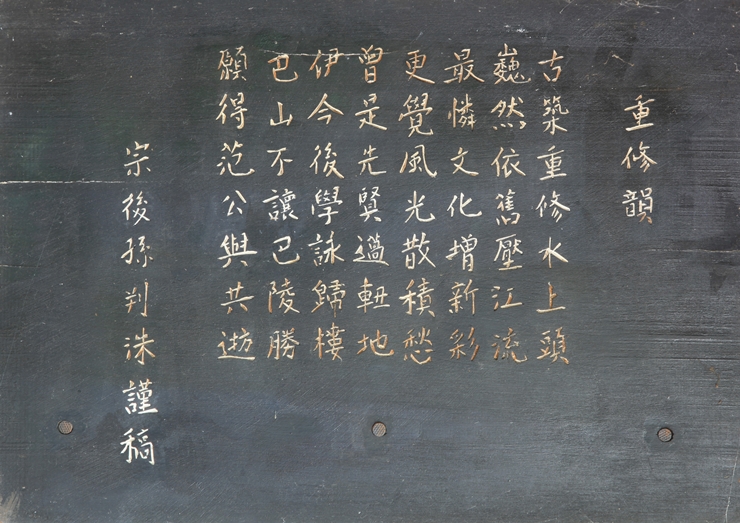 重修韻
古築重修水上頭
巍然依舊壓江流
最憐文化增新彩
更覺風光散積愁
曾是先賢薖軸地
伊今後學詠歸樓
巴山不讓巴陵勝
願得范公與共遊
宗後孫判洙謹稿